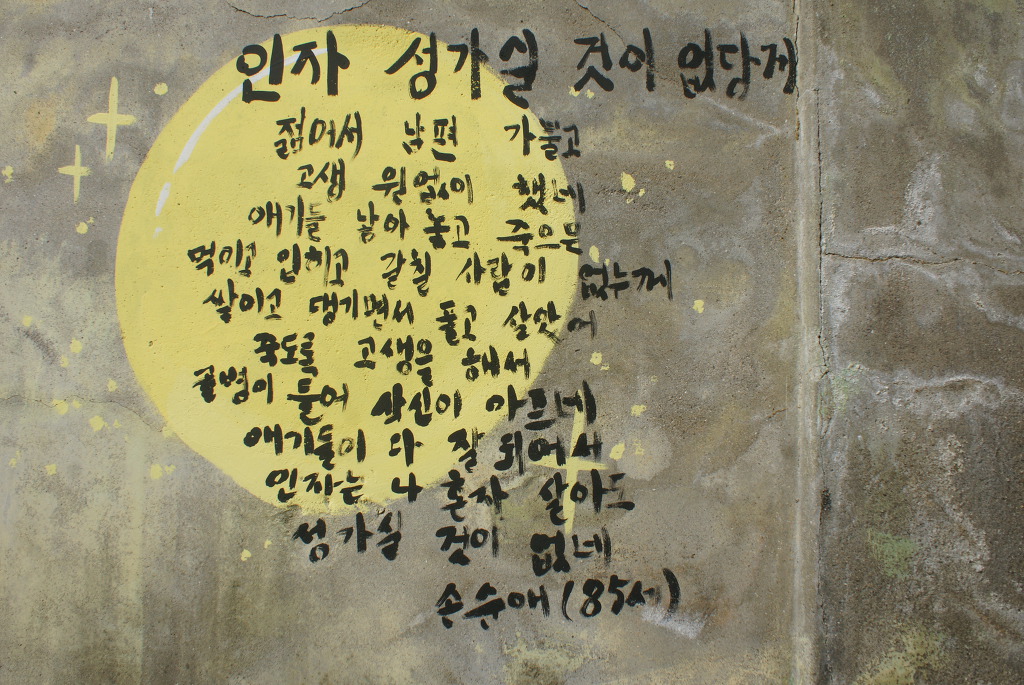 인자 성가실 것이 없당께
젊어서 남편 가불고
고생 원없이 했네
애기들 낳아 놓고 죽으믄
먹이고 입히고 갈칠 사람이 없누께
쌀이고 댕기면서 폴고 살앗어
죽도록 고생을 해서
골병이 들어 삭신이 아프네
애기들이 다 잘 되어서
인자는 나 혼자 살아도
성가실 것이 없네
손순애 (85세)